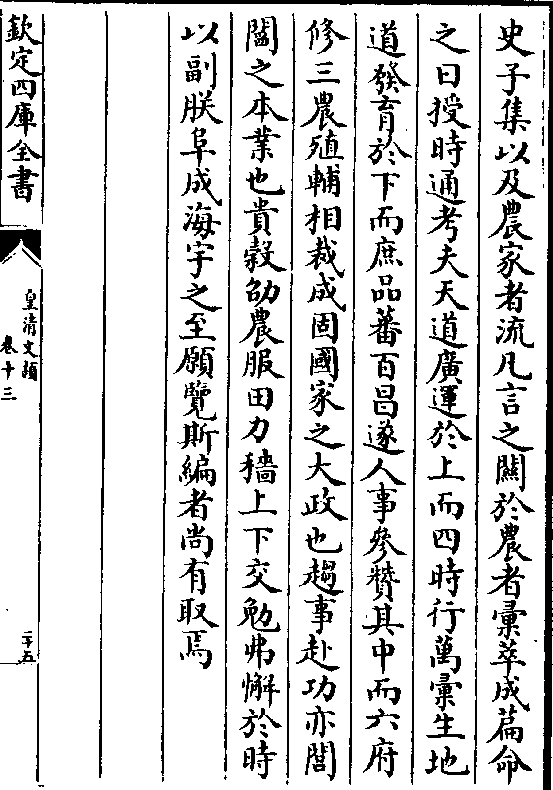 史子集以及農家者流凡言之關於農者彚萃成篇命
之曰授時通考夫天道廣運於上而四時行萬彚生地
道發育於下而庶品蕃百昌遂人事參贊其中而六府
修三農殖輔相裁成固國家之大政也趨事赴功亦閭
閻之本業也貴穀劭農服田力穡上下交勉弗懈於時
以副朕阜成海宇之至願覽斯編者尚有取焉
欽定四庫全書
皇清文頴
卷十三
二十五